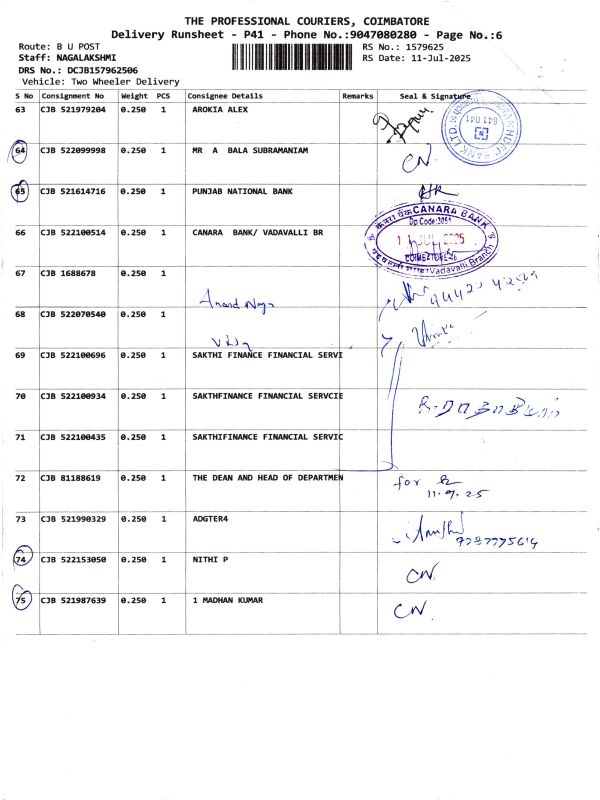 THE PROFESSIONAL COURIERS, COIMBATORE
Delivery Runsheet - P41 - Phone No.:9047080280 - Page No.:6
Route: B U POST RS No.: 1579625
Staff: NAGALAKSHMI RS Date: 11-Jul-2025
DRS No.: DCJB157962506
Vehicle: Two Wheeler Delivery
S No Consignment No Weight PCS Consignee Details Remarks Seal & Signature
63 CJB 521979204 0.250 1 AROKIA ALEX
641 041
64 CJB 522099998 0.250 1 MR A BALA SUBRAMANIAM CN
65 CJB 521614716 0.250 1 PUNJAB NATIONAL BANK
CANARA BANK
Dp.Code:3051
66 CJB 522100514 0.250 1 CANARA BANK/ VADAVALLI BR
11 JUL 2025
COIMBATORE-46
Vadavalli Branch
67 CJB 1688678 0.250 1
Anand Naga
68 CJB 522070540 0.250 1
69 CJB 522100696 0.250 1 SAKTHI FINANCE FINANCIAL SERVI
70 CJB 522100934 0.250 1 SAKTHFINANCE FINANCIAL SERVCIE
71 CJB 522100435 0.250 1 SAKTHIFINANCE FINANCIAL SERVIC
72 CJB 81188619 0.250 1 THE DEAN AND HEAD OF DEPARTMEN for
73 CJB 521990329 0.250 1 ADGTER4
74 CJB 522153050 0.250 1 NITHI P CN.
75 CJB 521987639 0.250 1 1 MADHAN KUMAR CN.